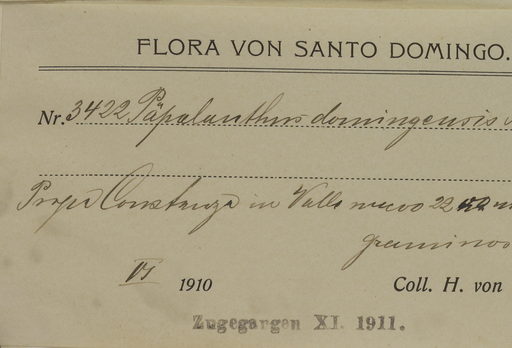 FLORA VON SANTO DOMINGO.
Nr. 3422 Päpalanthus domingensis
Prope Constanza in Valle nuevo 22
graminos
VI 1910 Coll. H. von
Zugegangen XI. 1911.